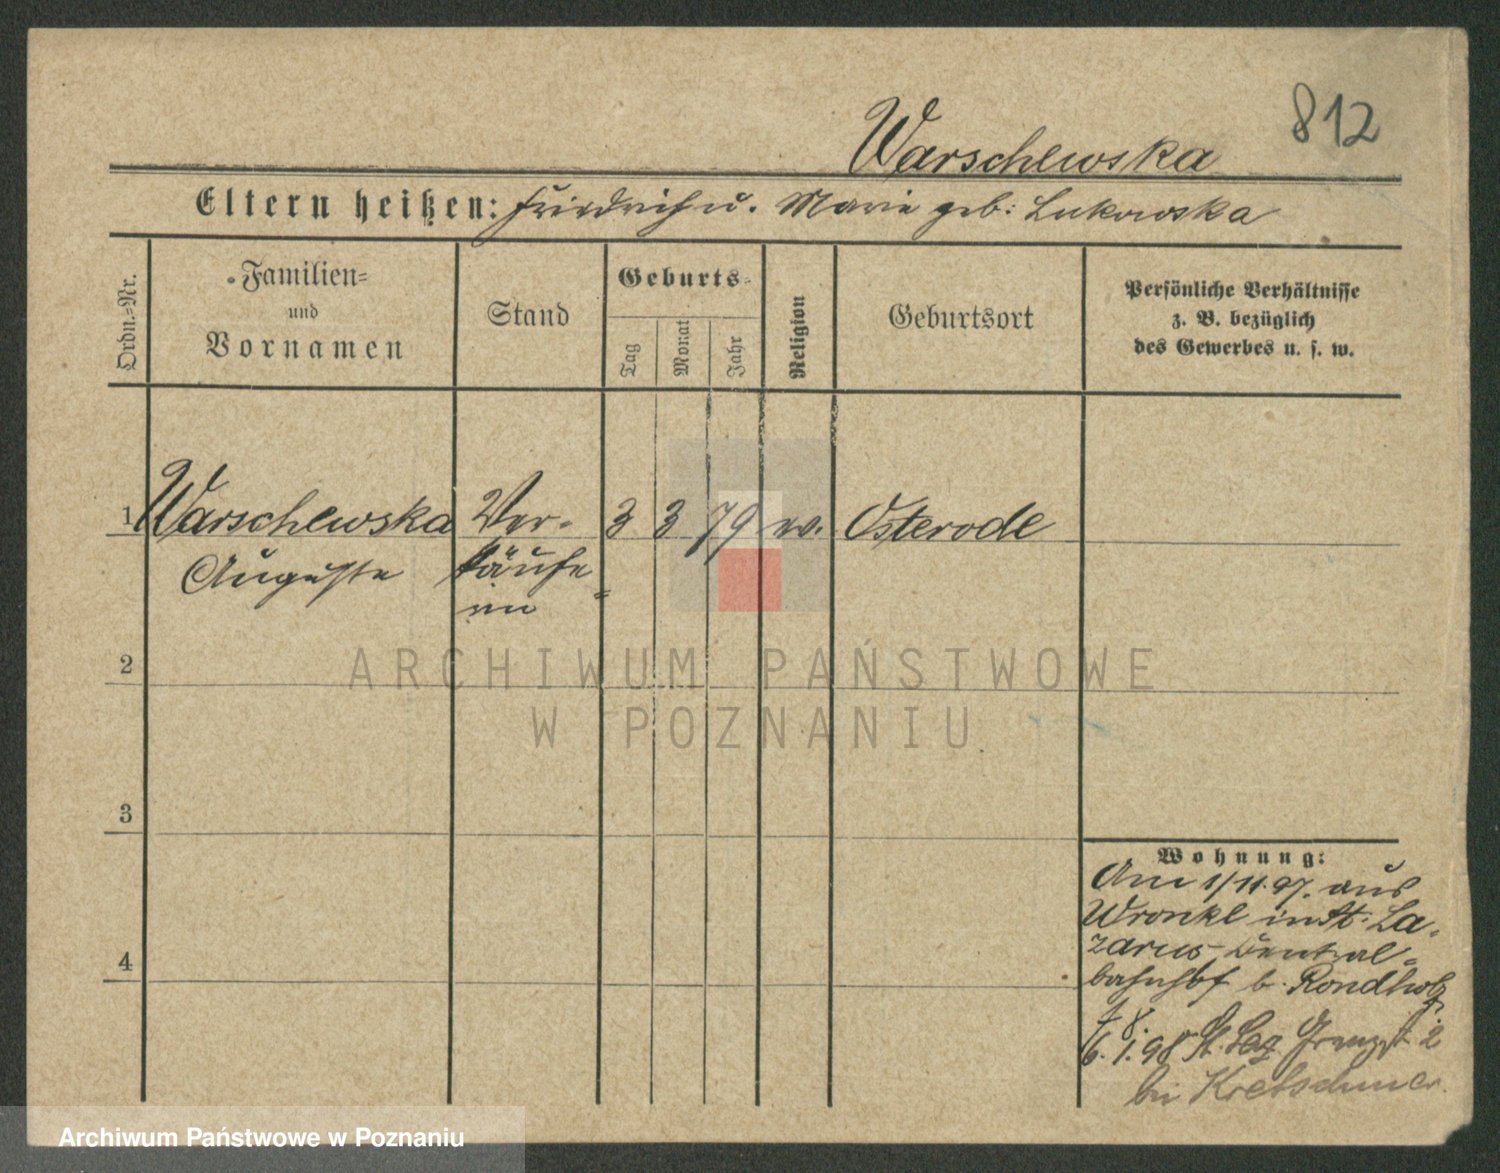 812
Warschewska
Eltern heißen: Friedrich u. Marie geb: Lukowska
Ordn.-Nr.
Familien-
und
Vornamen
Stand
Geburts-
Tag
Monat
Jahr
Religion
Geburtsort
Persönliche Verhältnisse
z. B. bezüglich
des Gewerbes u. s. w.
1 Warschewska Ver- 3 3 79 ev. Osterode
Auguste käufe-
rin
ARCHIWUM PAŃSTWOWE
W POZNANIU
2
3
4
Wohnung:
Am 1/11.97. aus
Wronke in St. La-
zarus, Central-
bahnhof b. Rondholz
6. 1. 98 St. Laz. Grenzst. 2
bei Kretschmer.
Archiwum Państwowe w Poznaniu